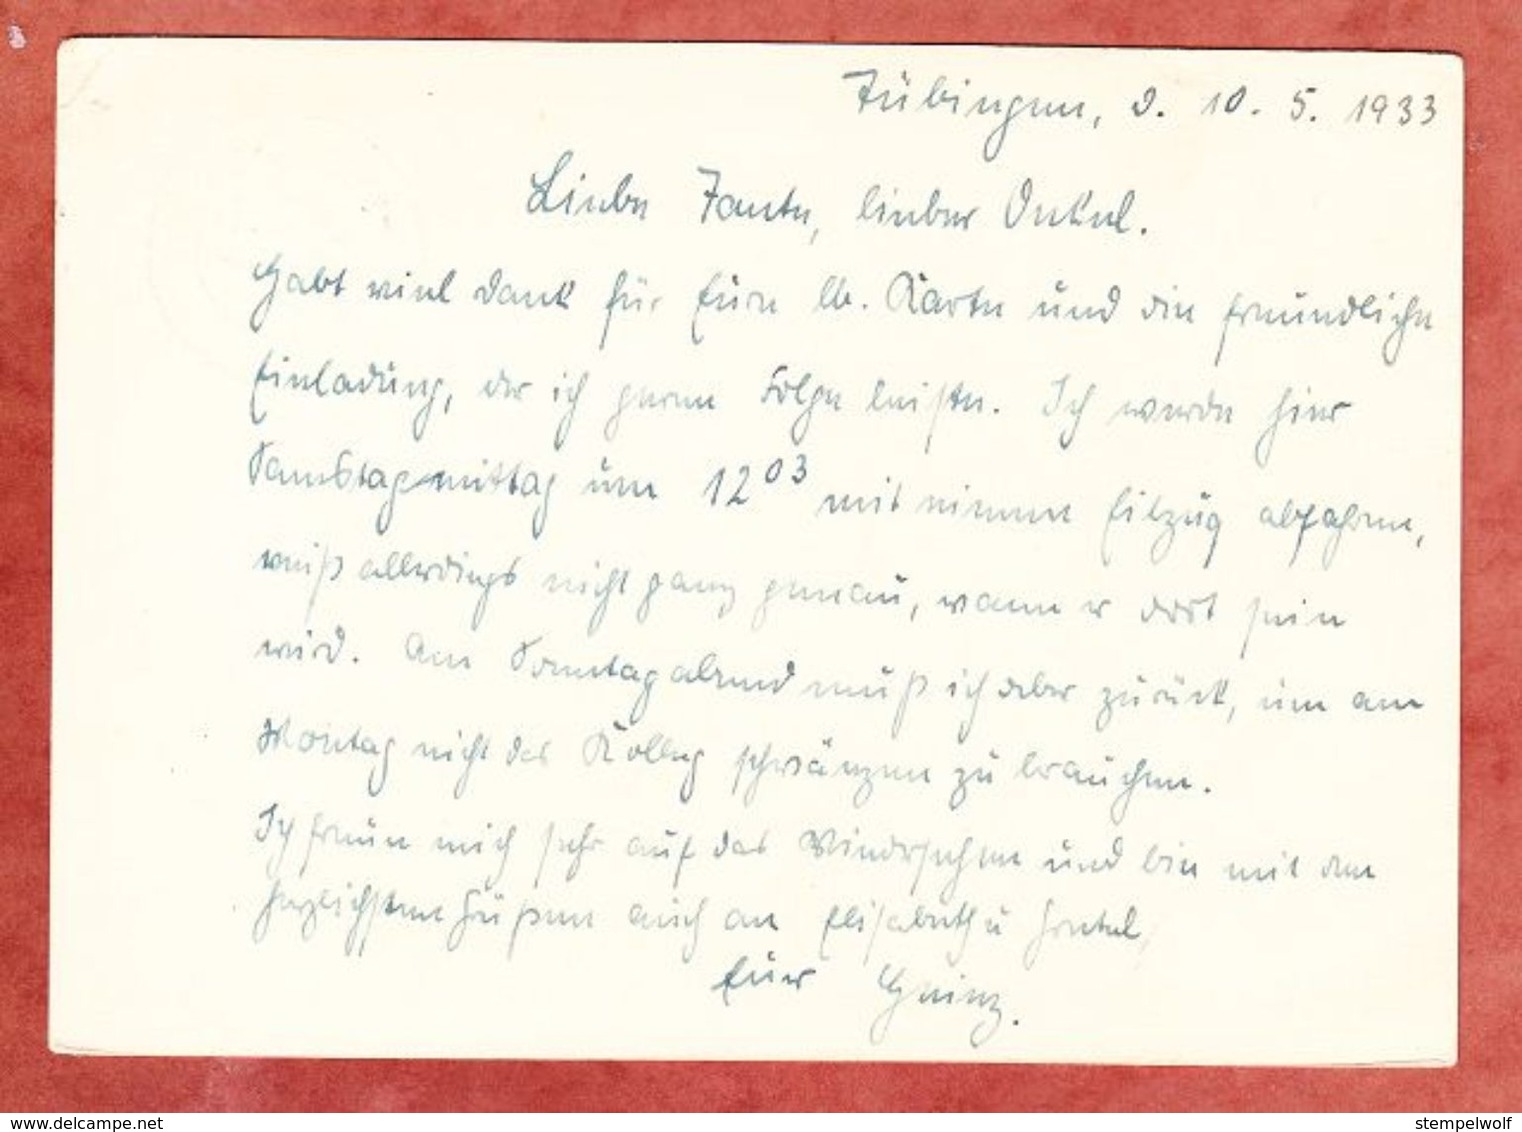 Tübingen, d. 10. 5. 1933
Liebe Tante, lieber Onkel.
Habt viel Dank für Eure lb. Karte und die freundliche
Einladung, der ich gerne Folge leiste. Ich werde hier
Samstagmittag um 12 03 mit einem Eilzug abfahren,
weiß allerdings nicht ganz genau, wann er dort sein
wird. Am Sonntagabend muß ich aber zurück, um am
Montag nicht das Kolleg schwänzen zu brauchen.
Ich freue mich sehr auf das Wiedersehen und bin mit den
herzlichsten Grüßen auch an Elisabeth u Gretel,
Euer Heinz.
delcampe.net
stempelwolf